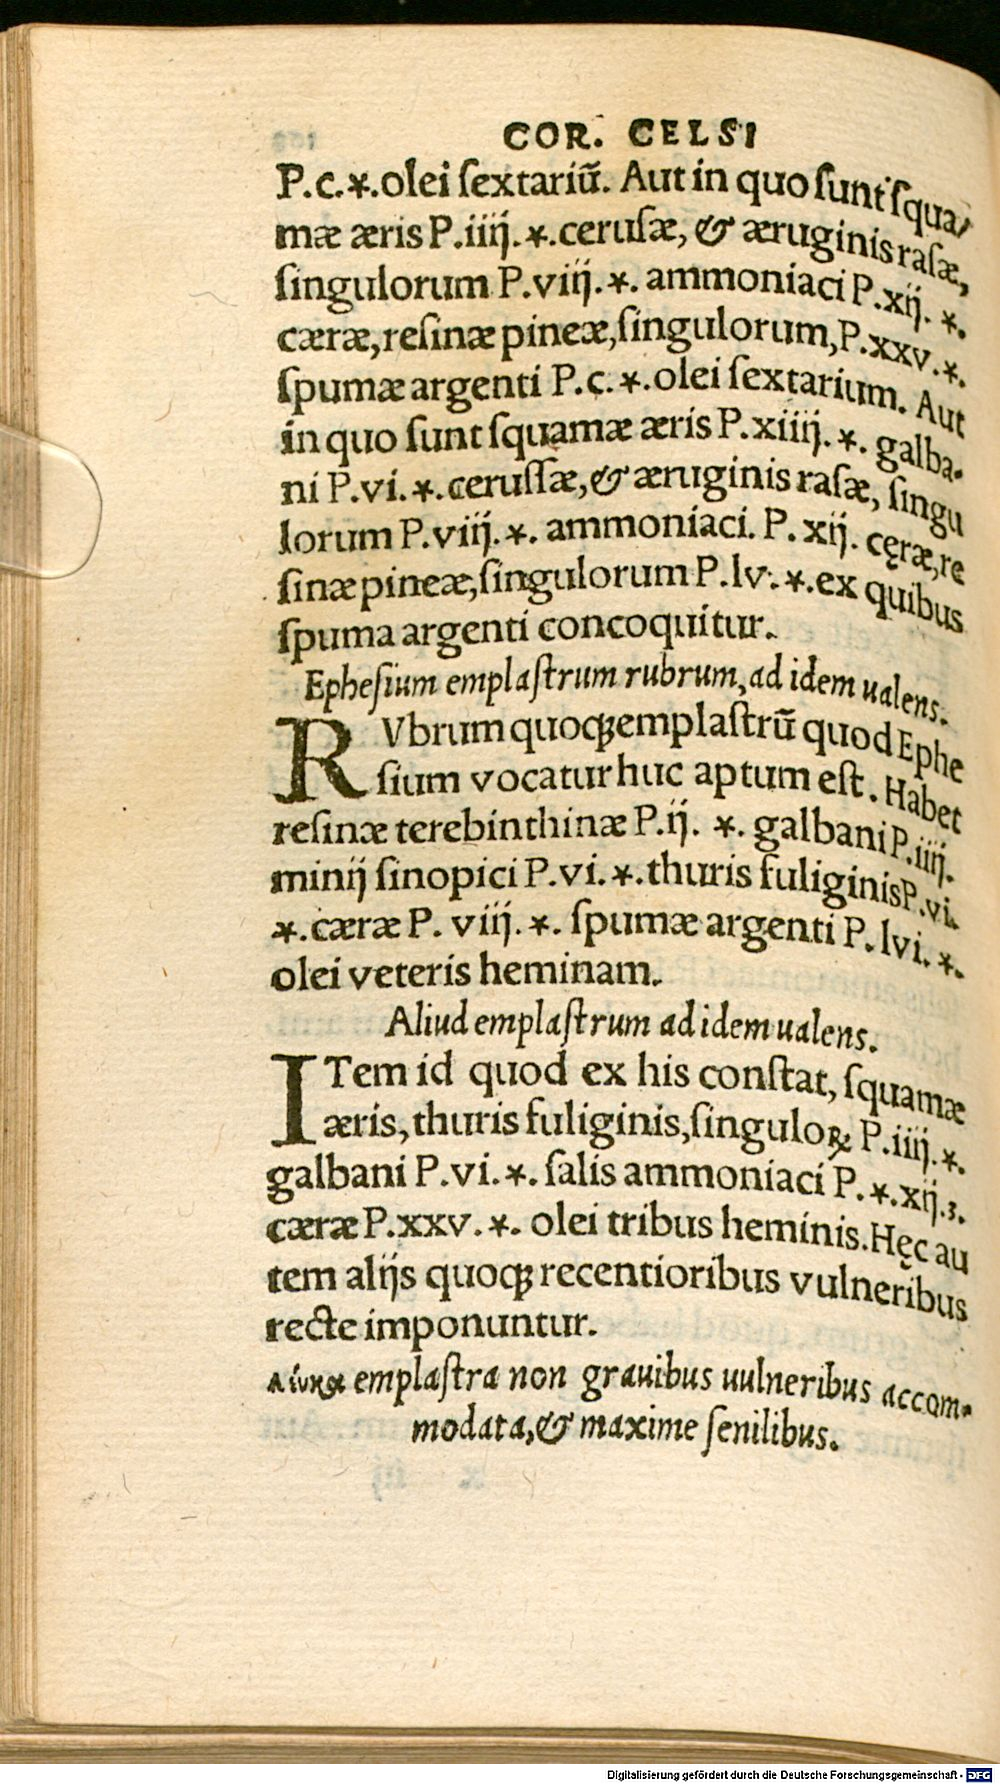 COR. CELSI
P.c.*.olei ſextariũ. Aut in quo ſunt ſqua/
mæ æris P.iiij. *.ceruſæ, & æruginis raſæ,
ſingulorum P.viij.*. ammoniaci P.xij. *.
cæræ,reſinæ pineæ,ſingulorum,P.xxv.*.
ſpumæ argenti P.c. *.olei ſextarium. Aut
in quo ſunt ſquamæ æris P.xiiij. *. galba-
ni P.vi. *.ceruſſæ,& æruginis raſæ, ſingu
lorum P.viij.*. ammoniaci. P. xij. cęræ,re
ſinæ pineæ,ſingulorum P.lv. *.ex quibus
ſpuma argenti concoquitur.
Epheſium emplaſtrum rubrum,ad idem ualens.
RVbrum quoqꝫ emplaſtrũ quod Ephe
ſium vocatur huc aptum eſt. Habet
reſinæ terebinthinæ P.ij. *. galbani P.iiij.
minij ſinopici P.vi. *.thuris fuliginis P.vi.
*.cæræ P. viij. *. ſpumæ argenti P. lvi. *.
olei veteris heminam.
Aliud emplaſtrum ad idem ualens.
ITem id quod ex his conſtat, ſquamæ
æris, thuris fuliginis,ſinguloꝝ P.iiij.*.
galbani P.vi.*. ſalis ammoniaci P.*.xij.ʒ.
cæræ P.xxv.*. olei tribus heminis.Hęc au
tem alijs quoqꝫ recentioribus vulneribus
recte imponuntur.
emplaſtra non grauibus uulneribus accom-
modata,& maxime ſenilibus.
Digitalisierung gefördert durch die Deutsche Forschungsgemeinschaft - DFG